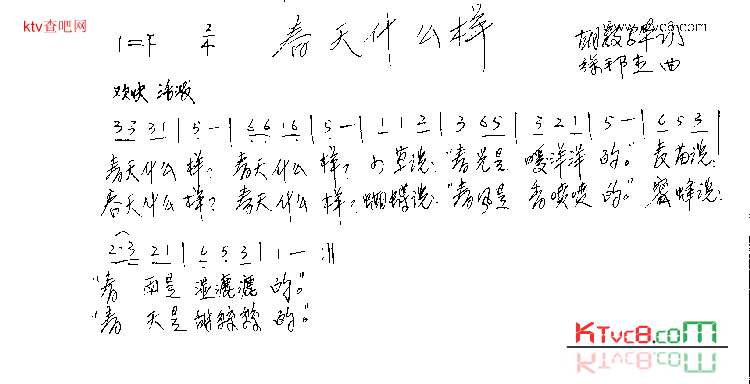 ktv查吧网
www.ktvc8.com
1=F 2/4 春天什么样
曲
欢快 活泼
3 3 3 1 | 5 - | 6 6 1 6 | 5 - | 1 1 2 | 3 6 5 | 3 2 1 | 5 - | 6 5 3 |
春天什么样? 春天什么样? 小草说:"春光是 暖洋洋 的。" 麦苗说:
春天什么样? 春天什么样? 蝴蝶说:"春风是 香喷喷 的。" 蜜蜂说:
2·3 2 1 | 6 5 3 | 1 - :||
"春 雨是 湿漉漉 的。"
"春 天是 甜丝丝 的。"
KTVc8.com